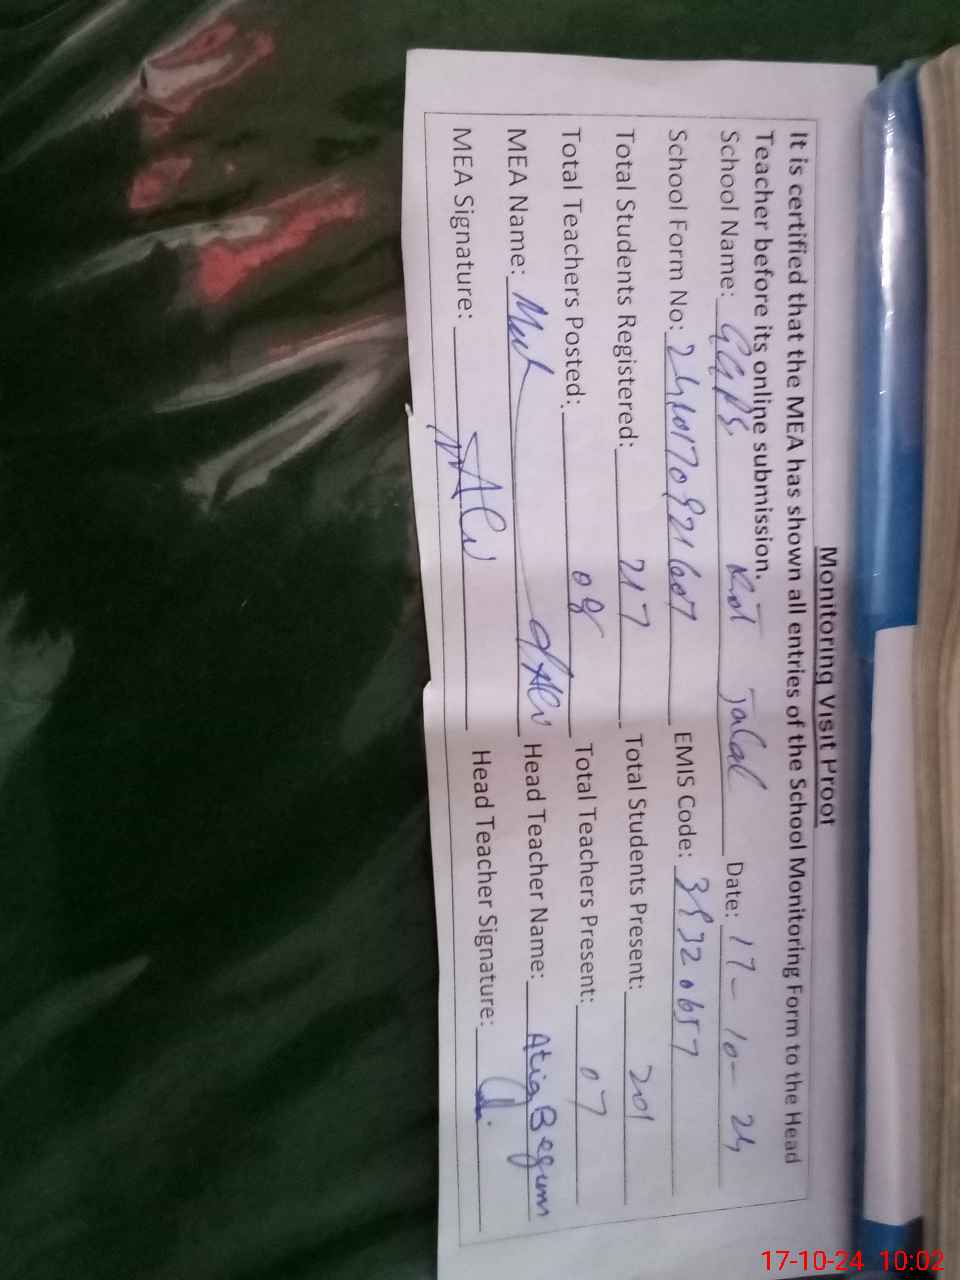 Monitoring Visit Proof
It is certified that the MEA has shown all entries of the School Monitoring Form to the Head
Teacher before its online submission.
School Name: GGPS Kot Jalal Date: 17-10-24
School Form No: EMIS Code:
Total Students Registered: 217 Total Students Present: 201
Total Teachers Posted: 08 Total Teachers Present: 07
MEA Name: Head Teacher Name: Atiq Begum
MEA Signature: Head Teacher Signature:
17-10-24 10:02